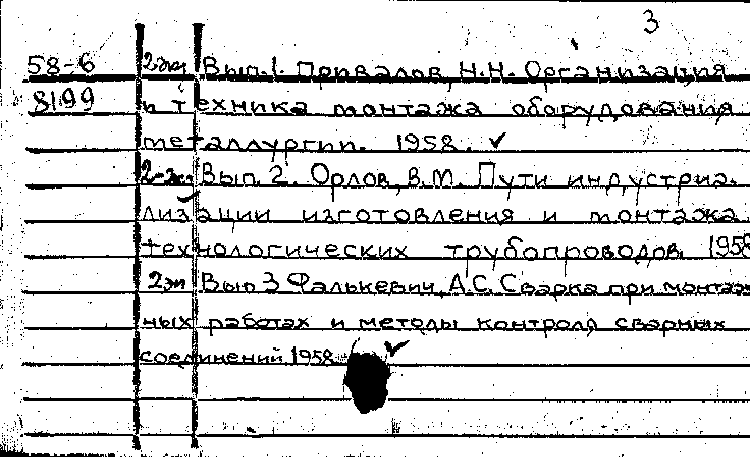 3
58-6 2 эк Вып.1. Привалов, Н.Н. Организация
8199 и техника монтажа оборудования
металлургии. 1958. ✓
2-эк. Вып. 2. Орлов, В.М. Пути индустриа-
лизации изготовления и монтажа
технологических трубопроводов. 1958
2эк Вып 3 Фалькевич, А.С. Сварка при монтаж
ных работах и методы контроля сварных
соединений. 1958 ✓